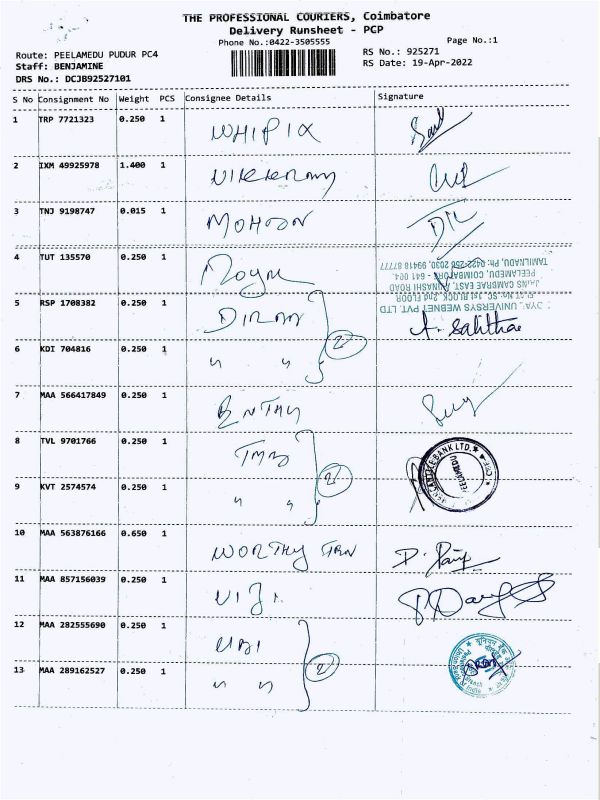 THE PROFESSIONAL COURIERS, Coimbatore
Delivery Runsheet - PCP
Phone No.:0422-3505555
Page No.:1
Route: PEELAMEDU PUDUR PC4
RS No.: 925271
Staff: BENJAMINE
RS Date: 19-Apr-2022
DRS No.: DCJB92527101
S No Consignment No Weight PCS Consignee Details Signature
1 TRP 7721323 0.250 1 WHIPIX
2 IXM 49925978 1.400 1
3 TNJ 9198747 0.015 1 MOHOON
4 TUT 135570 0.250 1
UNIVERSYS WEBNET PVT. LTD
SC. 1st BLOCK, 2nd FLOOR
EAST, AVINASHI ROAD
PEELAMEDU, COIMBATORE - 641 004.
TAMILNADU, Ph: 0422-256 2030, 99418 87777
5 RSP 1708382 0.250 1 2
6 KDI 704816 0.250 1 " "
7 MAA 566417849 0.250 1
8 TVL 9701766 0.250 1 TMB 2
BANK LTD. PEELAMEDU
9 KVT 2574574 0.250 1 " "
10 MAA 563876166 0.650 1 WORTHY
11 MAA 857156039 0.250 1 VIJI
12 MAA 282555690 0.250 1 UBI 2
13 MAA 289162527 0.250 1 " "